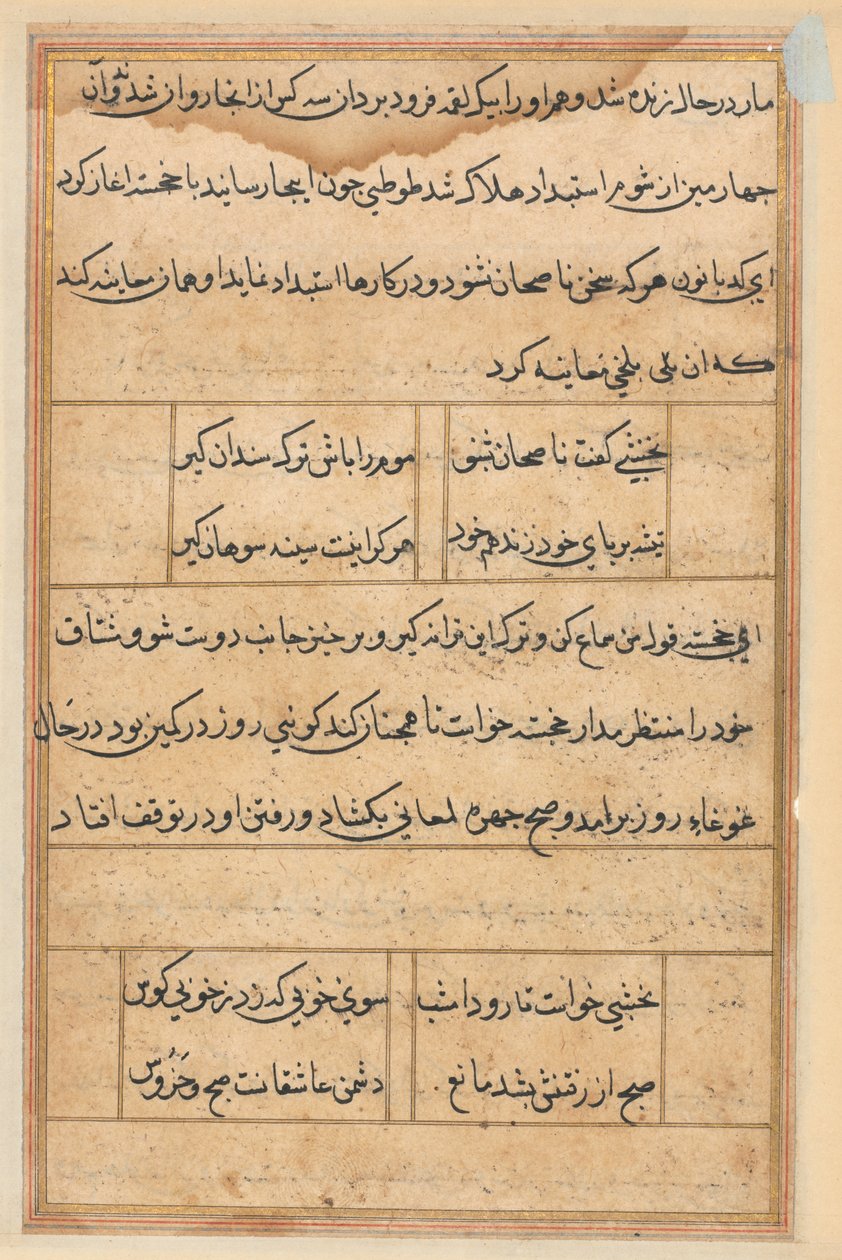 مار در حال زنده شد و هم او را بیک لقمه فرود برد ان سه کس از انجا روان شدند و آن
جهارمین از شوم استبداد هلاک شد طوطی جون اینجا رسانید با خجسته اغاز کرد
ای کدبانو هر که سخن ناصحان نشنود و در کارها استبداد نماید او همان معاینه کند
که ان بلخی معاینه کرد
نخشبی کفت ناصحان بشنو
موم را باش ترک سندان کیر
تیشه بر پای خود زند هم خود
هر کرا نیست سینه سوهان کیر
ای خجسته قول من سماع کن و ترک این ترانه کیر و برخیز جانب دوست شو و مشتاق
خود را منتظر مدار خجسته خواست تا همجنان کند کونی روز در کمین بود در حال
غوغاء روز برامد و صبح جهره لمعانی بکشاد و رفتن او در توقف افتاد
نخشبی خواست تا رود امشب
سوی خوبی که زد ز خوبی کوس
صبح از رفتنش بشد مانع
دشمن عاشقانست صبح و خروس